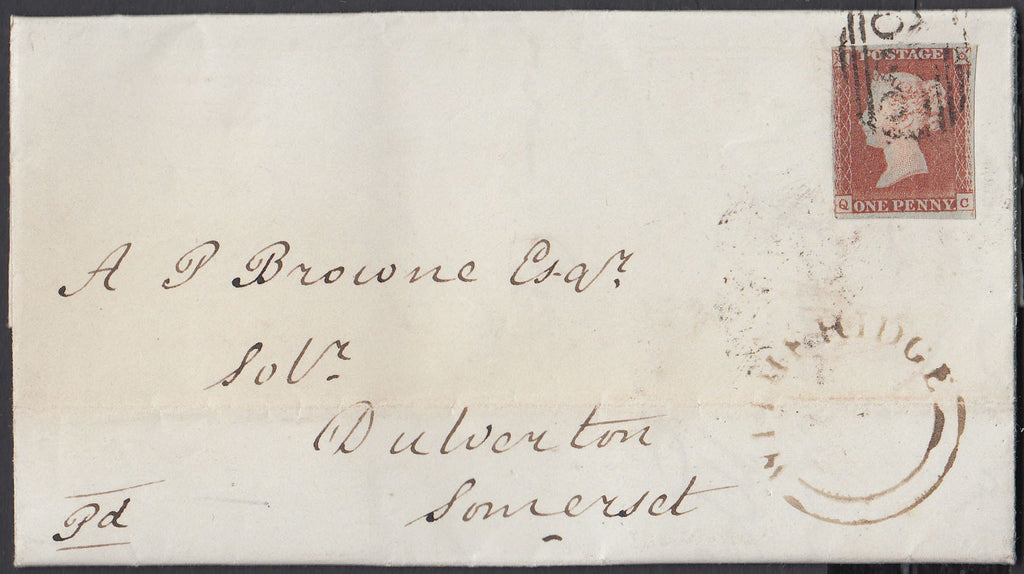 POSTAGE
Q ONE PENNY C
A P Browne Esqr.
Solr.
Dulverton
Somerset
Pd